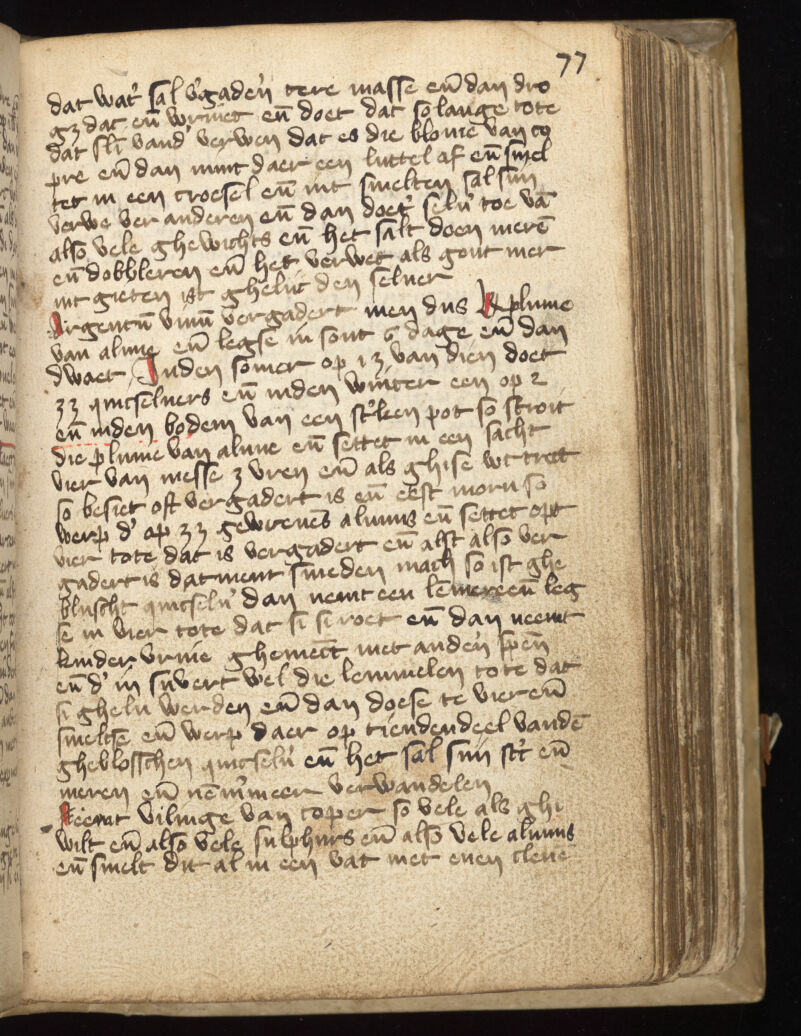 77
dat wat' sal v'gad'en tere masse en̄ dan dro
gz dat en̄ wrivet en̄ doet dat so lange tote
dat sli vand' verwen dat es die blome van co
pre en̄ dan nimt daer een luttel af en̄ smel
tet in een croesel en̄ int smelten sal siin
verwe ver anderen en̄ dan doet' selu' toe vā
also vele ghewichts en̄ het salt doen merē
en̄ dobbleren en̄ het verwet als gout mer
int gieten ist gheliic den selver
Argentū vivū vergadert men dus R plume
van alune en̄ legse in sout 6 dage en̄ dan
dwaet Inden somer op 1 ʒ van dien doet
3 ʒ quicselvers en̄ inden winter een op 2
en̄ inden bodem van een st'ken pot so stroit
die plume van alune en̄ settet in een sacht
vier van messe 3 vren en̄ als ghise wt trect
so besiet oft vergadert is en̄ eest moru so
werp d' op 3 ʒ gewrevens aluuns en̄ settet opt
vier tote dat is vergadert en̄ alst also ver
gadert is datment smeden mach so ist ghe
bluscht quicselu' dan nemt een lemeree en̄ leg
se in vier tote dat si si roet en̄ dan neemt
kinder vrine ghemēct met anderē
en̄ d' in suvert wel die lemmelen tote dat
si gheluu werden en̄ dan doese te vier en̄
smeltse en̄ werp daer op tiendendeel vandē
gheblosschen quicselu' en̄ het sal siin en̄
meren en̄ nēm'meer verwandelen
Neemt vilinge van coper so vele als ghi
wilt en̄ also vele sulphurs en̄ also vele aluuns
en̄ smelt dit al in een vat met enen clenē